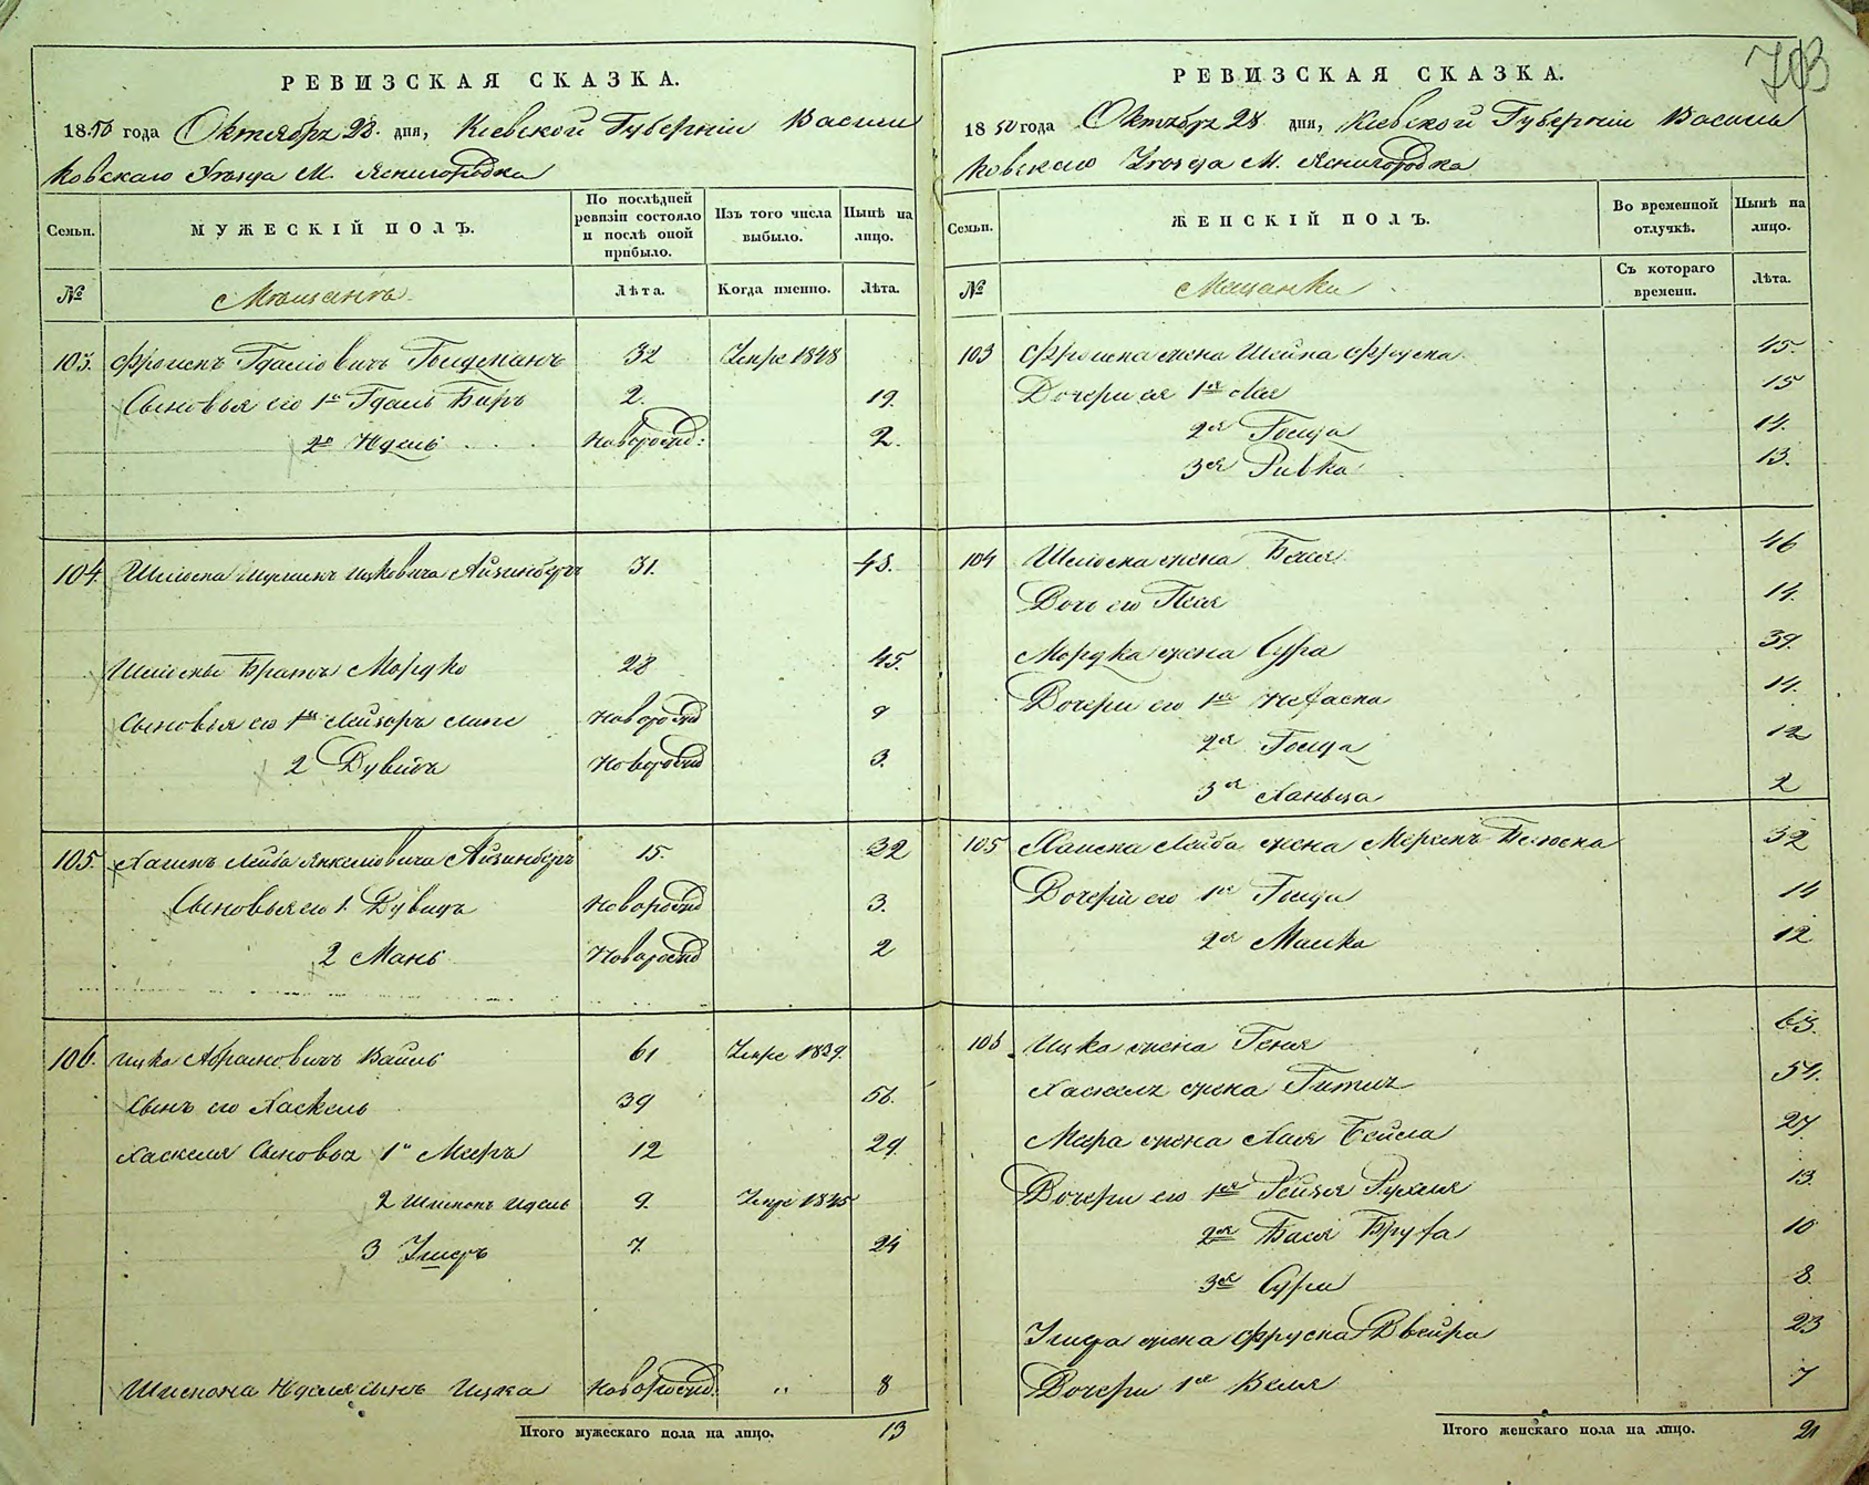 РЕВИЗСКАЯ СКАЗКА.
1850 года Октября 28. дня, Кіевской Губерніи Василь
ковскаго Уѣзда М. Ясногородка
Семьи.
МУЖЕСКІЙ ПОЛЪ.
По послѣдней
ревизіи состояло
и послѣ оной
прибыло.
Изъ того числа
выбыло.
Нынѣ на
лицо.
№
Мещанъ
Лѣта.
Когда именно.
Лѣта.
103. Фроимъ Гдаліовичъ Голдманъ 32 Умре 1848
Сыновья его 1й Гдаль Беръ 2. 19.
2й Юдель Новорожд: 2.
104. Шлиома Итковича Айзинбергъ 31. 48.
Шлиомы Братъ Мордко 28 45.
Сыновья его 1й Лейзоръ Новорожд 9
2 Дувидъ Новорожд 3.
105. Хаимъ Лейба Янкелiовича Айзинбергъ 15. 32
Сыновья его 1. Дувидъ Новорожд 3.
2 Мань Новорожд 2
106. Ицко Абрамовичъ Вайль 61 Умре 1839.
Сынъ его Хаскель 39 56.
Хаскеля Сыновья 1й Мееръ 12 29.
2 Шлиома Идель 9. Умре 1845
3 Ушеръ 7. 24
Идела сынъ Ицка Новорожд. " 8
Итого мужескаго пола на лицо. 13
703
РЕВИЗСКАЯ СКАЗКА.
1850 года Октября 28 дня, Кіевской Губерніи Василь
ковскаго Уѣзда М. Ясногородка
Семьи.
ЖЕНСКІЙ ПОЛЪ.
Во временной
отлучкѣ.
Нынѣ на
лицо.
№
Мещанки
Съ котораго
времени.
Лѣта.
103 Фроима жена Шейна Фрума 45.
Дочери ея 1я Лея 15
2я Голда 14.
3я Ривка 13.
104 Шлиома жена Бася 46
Дочь его Песя 14.
Мордка жена Сура 39.
Дочери его 1я Нехама 14.
2я Голда 12
3я Ханьца 2
105 Хаима Лейба жена 32
Дочери его 1я Голда 14
2я Малка 12
106. Ицка жена Геня 63.
Хаскеля жена Гитля 54.
Меера жена Хая Бейла 27.
Дочери его 1я Рейзя Рухля 13.
2я Бася Бруха 10
3я Сура 8.
Ушера жена Фрума Двейра 23
Дочери 1я Веля 7
Итого женскаго пола на лицо. 21